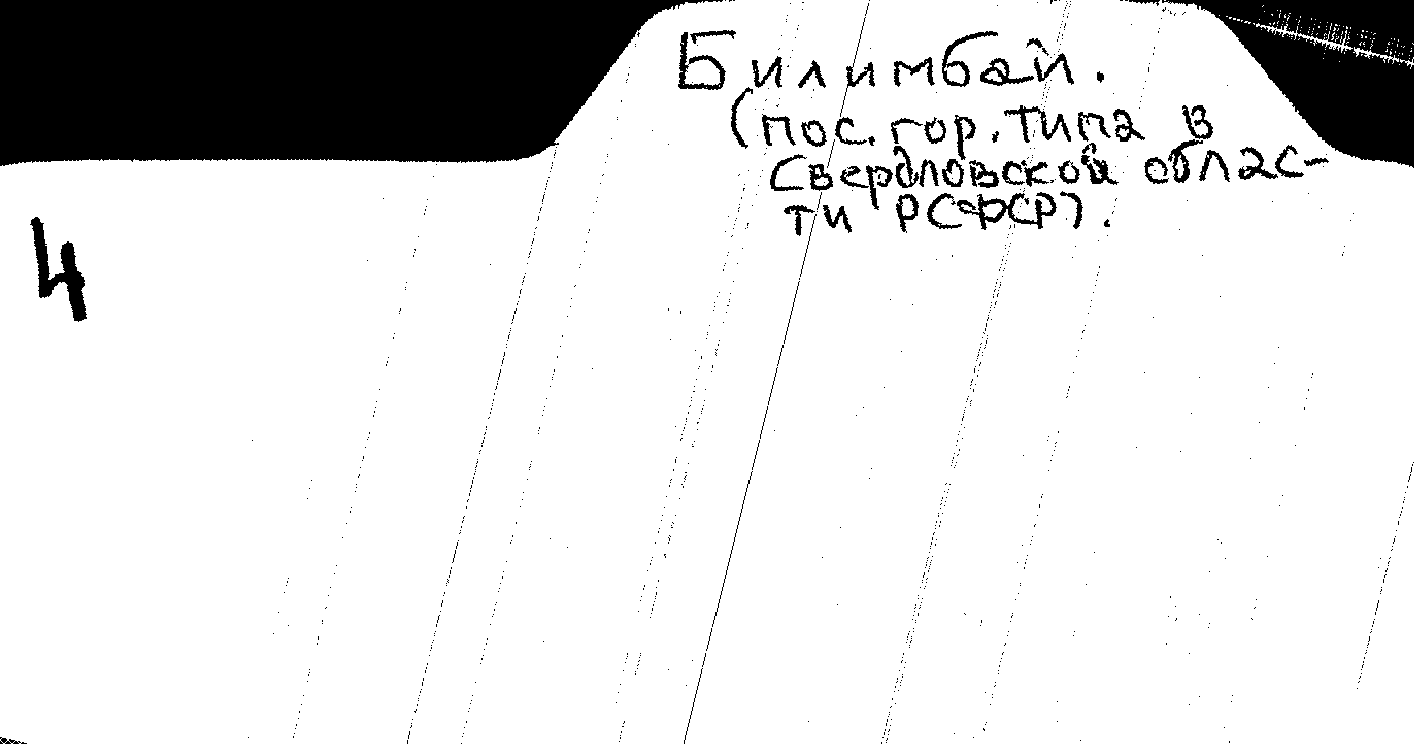 Билимбай.
(пос. гор. типа в
Свердловской облас-
ти РСФСР).
4